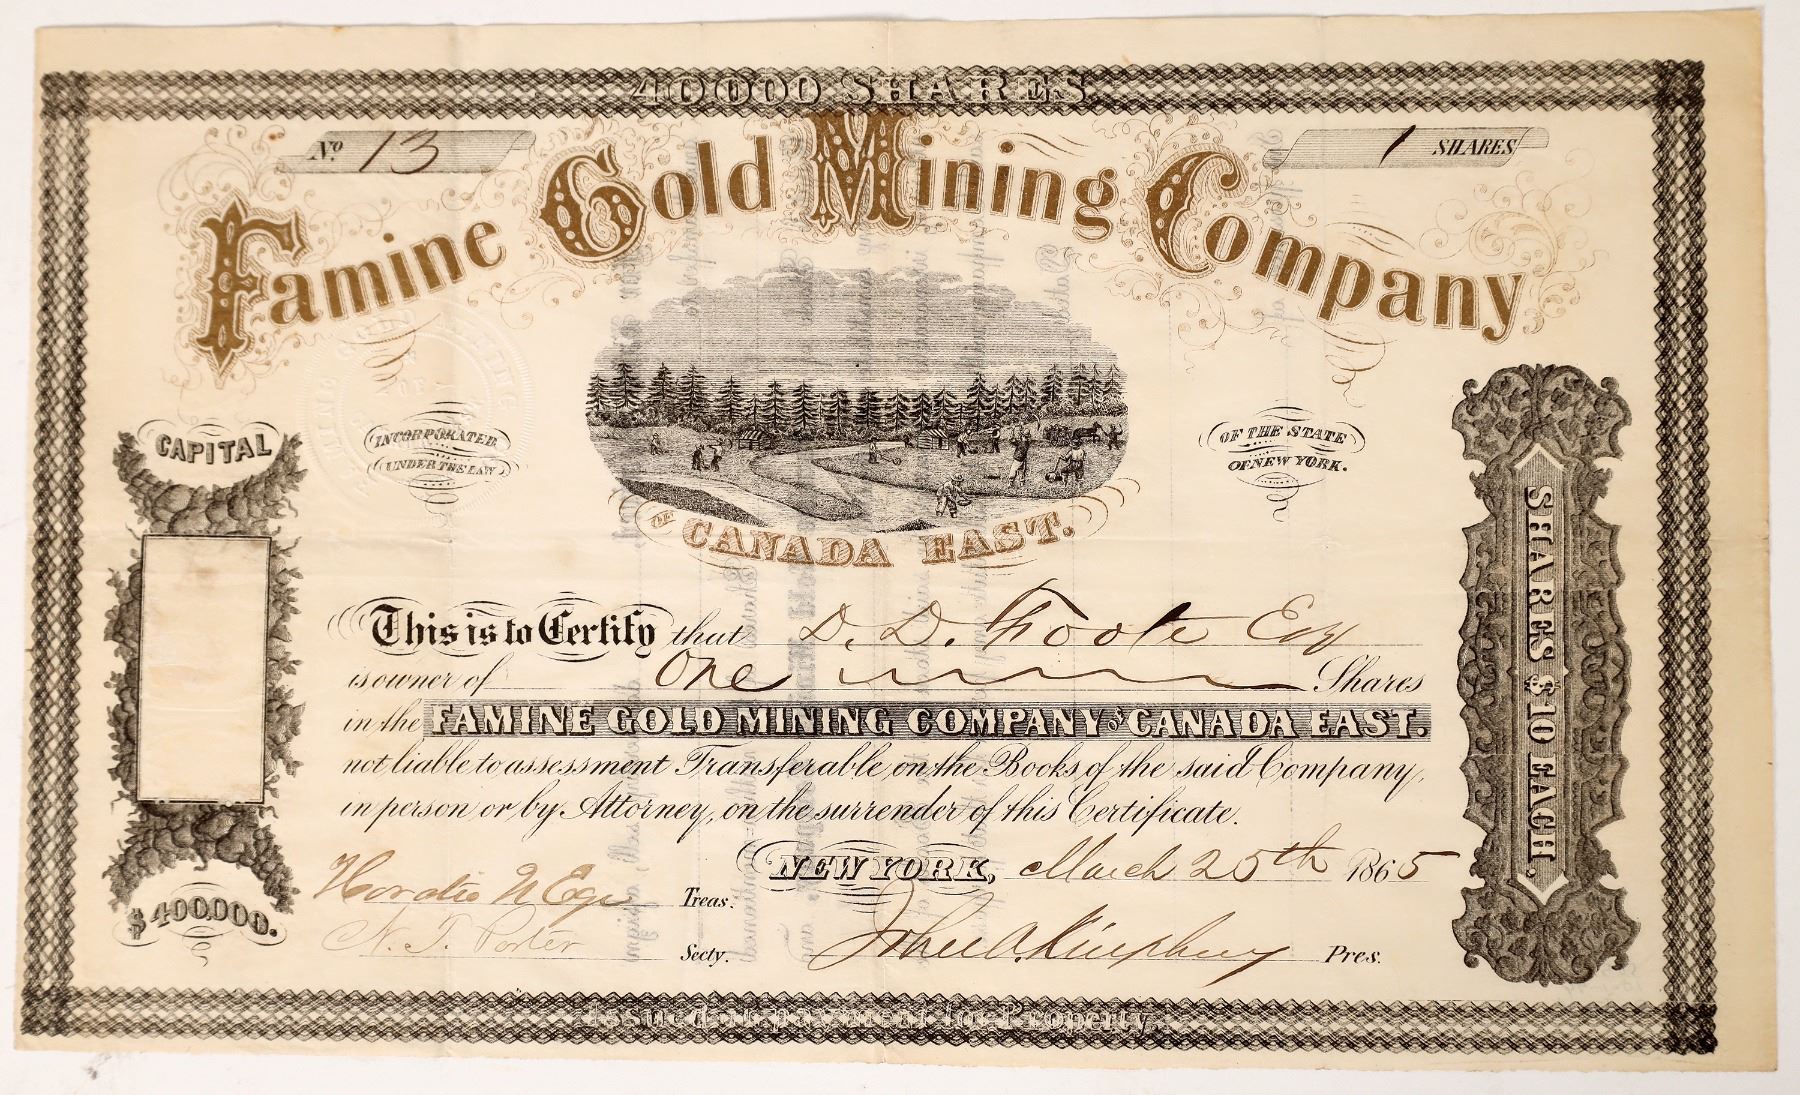 40000 SHARES
No. 13
1 SHARES
Famine Gold Mining Company
CAPITAL
INCORPORATED
UNDER THE LAW
OF THE STATE
OF NEW YORK.
OF CANADA EAST.
SHARES $10 EACH.
This is to Certify that D. D. Foote Esq
is owner of One Shares
in the FAMINE GOLD MINING COMPANY OF CANADA EAST.
not liable to assessment Transferable on the Books of the said Company,
in person or by Attorney, on the surrender of this Certificate.
NEW YORK, March 25th 1865
$400.000.
Horatio N Treas.
N. T. Porter Secty.
John A. Pres.
Issued in payment for Property